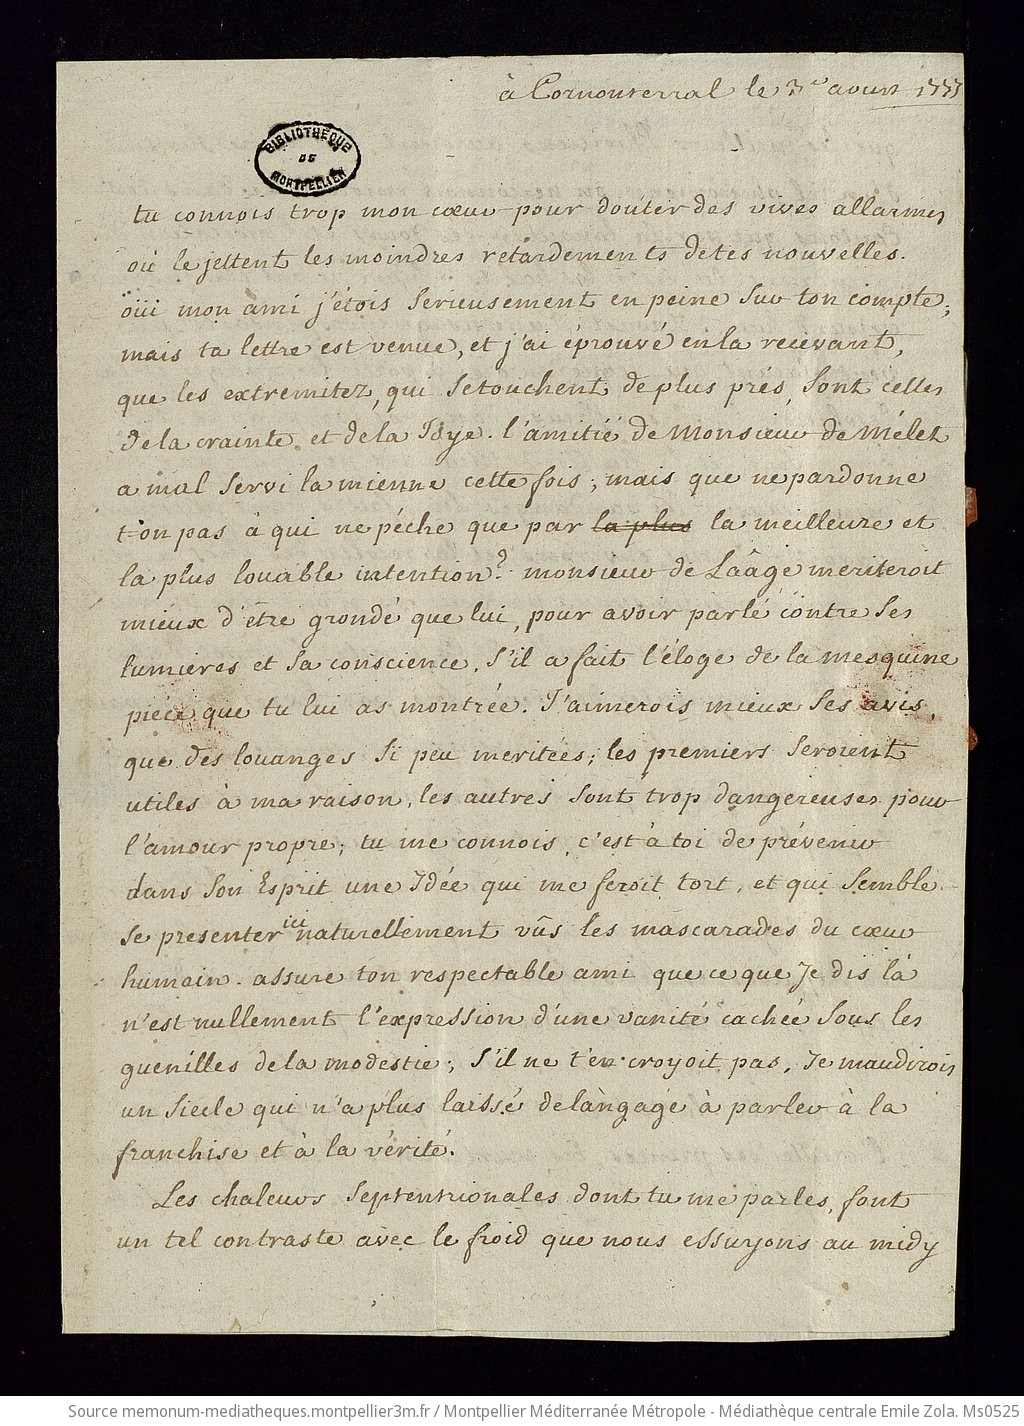 à Cornonterral le 3e. aoust 1777
BIBLIOTHEQUE
DE
MONTPELLIER
tu connois trop mon cœur pour douter des vives allarmes
où le jettent les moindres retardements de tes nouvelles.
oüi mon ami j'étois serieusement en peine sur ton compte;
mais ta lettre est venue, et j'ai éprouvé en la recevant,
que les extremitez, qui se touchent de plus prés, sont celles
de la crainte et de la Joye. l'amitié de Monsieur de Mélet
a mal servi la mienne cette fois; mais que ne pardonne
t'on pas à qui ne péche que par la plus la meilleure et
la plus louable intention? monsieur de Laâge meriteroit
mieux d'être grondé que lui, pour avoir parlé contre ses
lumieres et sa conscience, s'il a fait l'éloge de la mesquine
piéce que tu lui as montrée. J'aimerois mieux ses avis,
que des louanges si peu meritées; les premiers seroient
utiles à ma raison, les autres sont trop dangereuses pour
l'amour propre; tu me connois, c'est à toi de prévenir
dans son Esprit une Idée qui me feroit tort, et qui semble
se presenter ici naturellement vûs les mascarades du cœur
humain. assure ton respectable ami que ce que Je dis là
n'est nullement l'expression d'une vanité cachée sous les
guenilles de la modestie; s'il ne t'en croyoit pas, Je maudirois
un siecle qui n'a plus laissé de langage à parler à la
franchise et à la vérité.
Les chaleurs septentrionales dont tu me parles, font
un tel contraste avec le froid que nous essuyons au midy
Source memonum-mediatheques.montpellier3m.fr / Montpellier Méditerranée Métropole - Médiathèque centrale Emile Zola. Ms0525